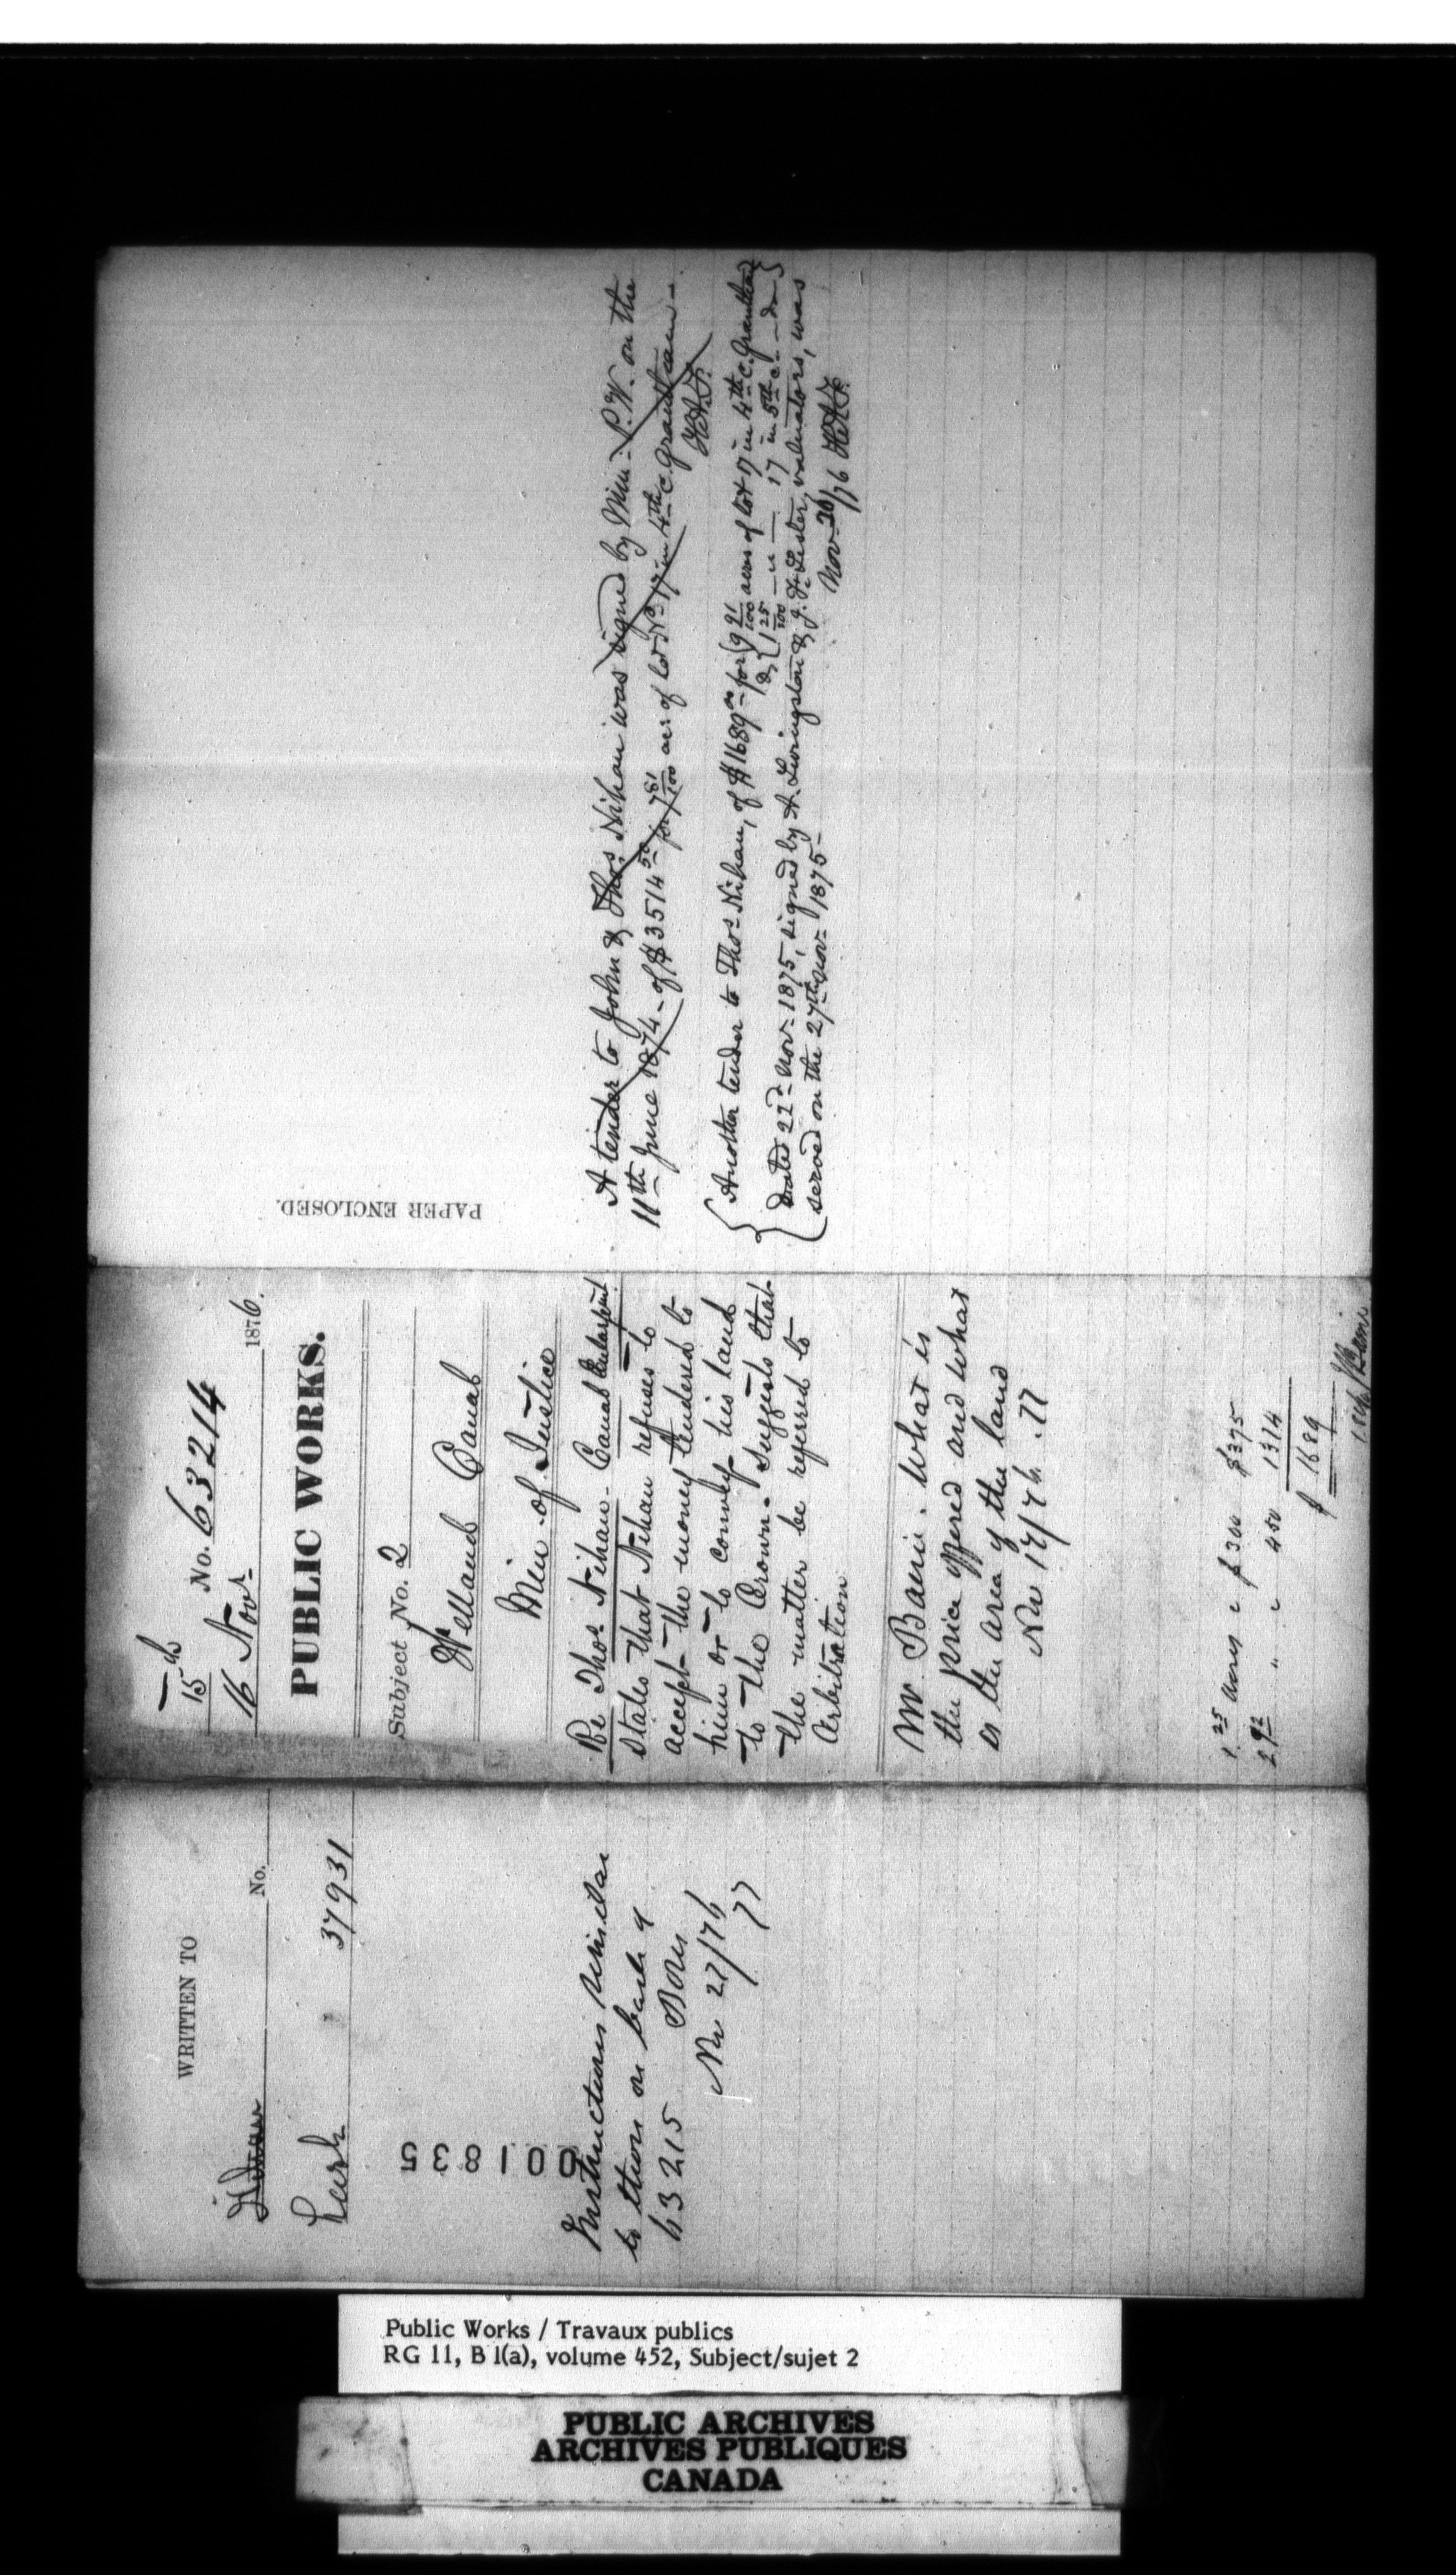 WRITTEN TO
No.
Lash 37931
001835
Instructions similar
to those on back of
63215
Nov 22/76
77
15th
16 Novr No. 63214 1876.
PUBLIC WORKS.
Subject No. 2
Welland Canal
Min. of Justice
Re Thos. Nihan - Canal Enlargemt.
States that Nihan refuses to
accept the money tendered to
him or to convey his land
to the Crown. Suggests that
the matter be referred to
Arbitration
Mr Baine. What is
the price offered and what
is the area of the land
Nov 17/76. 77
1.25 acres @ $300 $375
2 92 " @ 450 1314
$ 1689
PAPER ENCLOSED.
A tender to John & Thos. Nihan was signed by Min. P.W. on the
11th June 1874 - of $3514 50 for 7 81/100 acs of lot No 17 in 4th C. Grantham -
Another tender to Thos. Nihan, of $1689 00 for 9 91/100 acres of lot 17 in 4th C. Grantham
& 1 25/100 — " — 17 in 5th C. — do —
Dated 22d Nov. 1875, signed by A. Livingston & J. F. Lester, valuators, was
served on the 27th Nov. 1875 -
Nov. 20/76
Public Works / Travaux publics
RG 11, B 1(a), volume 452, Subject/sujet 2
PUBLIC ARCHIVES
ARCHIVES PUBLIQUES
CANADA